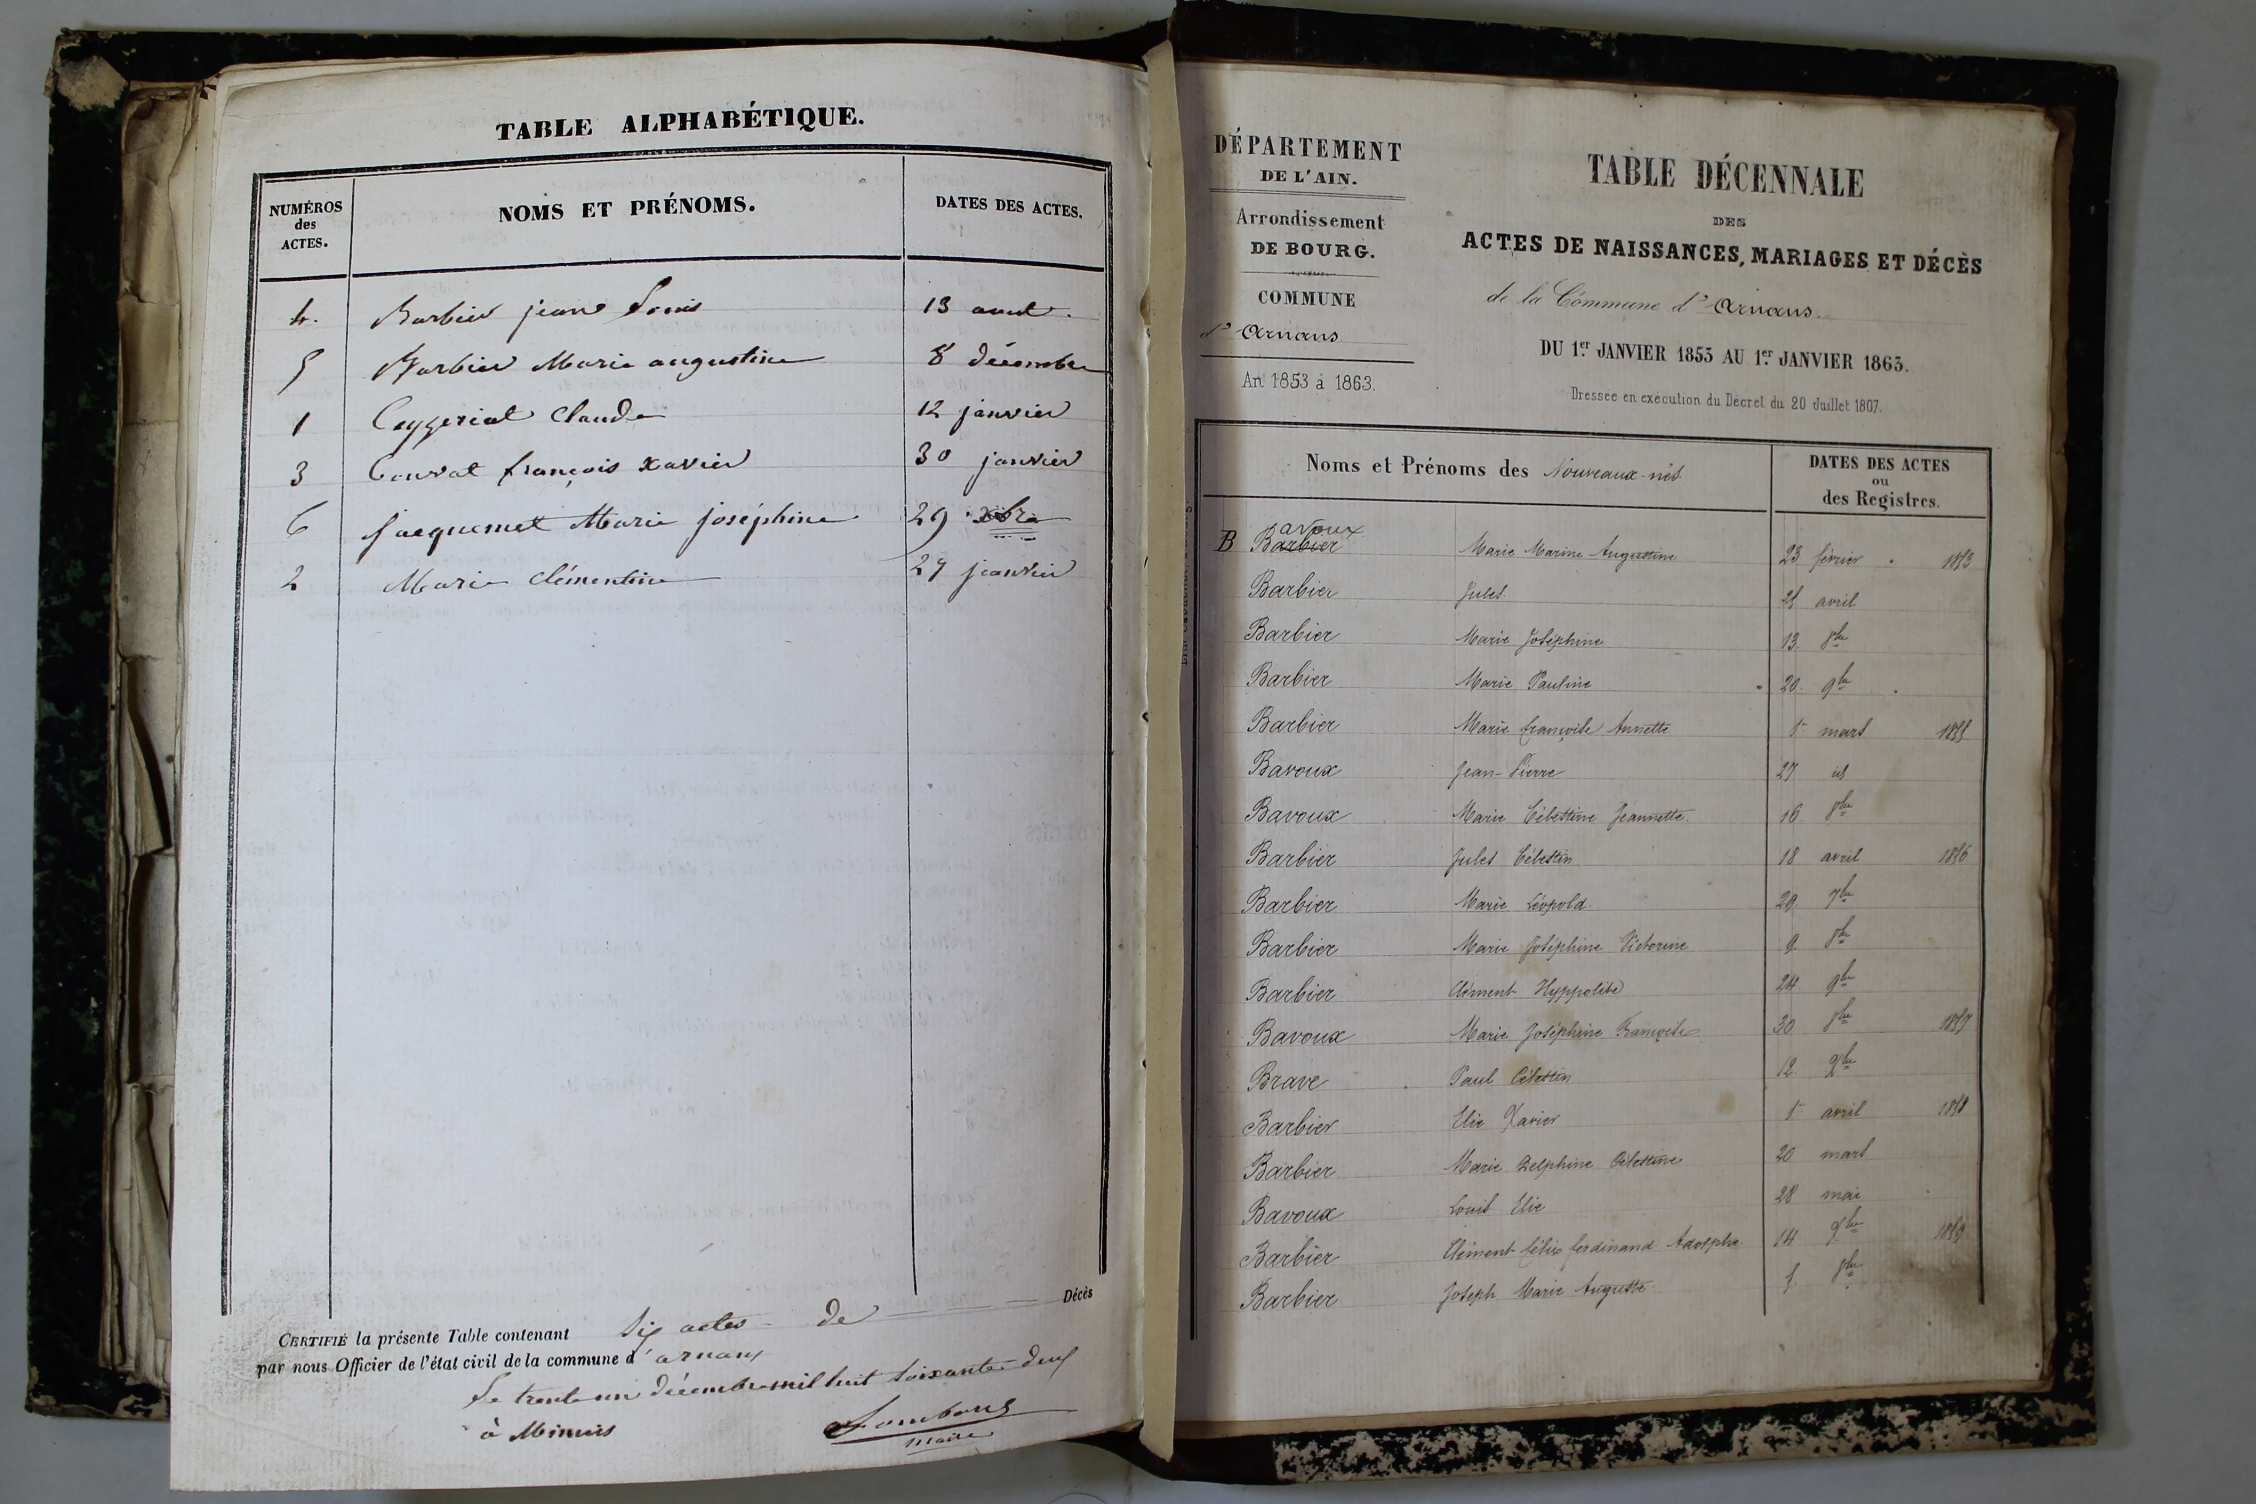 TABLE ALPHABÉTIQUE.
NUMÉROS des ACTES. NOMS ET PRÉNOMS. DATES DES ACTES.
4. Barbier jean Louis 13 avril.
5 Barbier Marie augustine 8 décembre
1 Claude 12 janvier
3 Convat françois xavier 30 janvier
6 Jacquemet Marie joséphine 29 xbre
2 Marie clémentine 29 janvier
CERTIFIÉ la présente Table contenant Six actes de Décès
par nous Officier de l'état civil de la commune d'arnans
Le trente un décembre mil huit soixante deux
à Minuit
maire
DÉPARTEMENT
DE L'AIN.
Arrondissement
DE BOURG.
COMMUNE
d'Arnans
An 1853 à 1863.
TABLE DÉCENNALE
DES
ACTES DE NAISSANCES, MARIAGES ET DÉCÈS
de la Commune d'Arnans.
DU 1.er JANVIER 1853 AU 1.er JANVIER 1863.
Dressée en exécution du Décret du 20 Juillet 1807.
Noms et Prénoms des Nouveaux-nés DATES DES ACTES ou des Registres.
avoux
B Barbier Marie Marine Augustine 23 février 1853
Barbier Jules 25 avril
Barbier Marie Joséphine 13 8bre
Barbier Marie Pauline 20 9bre
Barbier Marie françoise Annette 5 mars 1855
Bavoux Jean-Pierre 27 id
Bavoux Marie Célestine Jeannette. 16 8bre
Barbier Jules Célestin 18 avril 1856
Barbier Marie Léopold 29 7bre
Barbier Marie Joséphine Victorine 9 8bre
Barbier Clément Hyppolite 24 9bre
Bavoux Marie Joséphine Françoise 30 8bre 1857
Brave Paul Célestin 12 Xbre
Barbier Elie Xavier 5 avril 1858
Barbier Marie Delphine Célestine 20 mars
Bavoux Louis Elie 28 mai
Barbier Clément félix ferdinand Adolphe 14 Xbre 1859
Barbier Joseph Marie Auguste 5 8bre